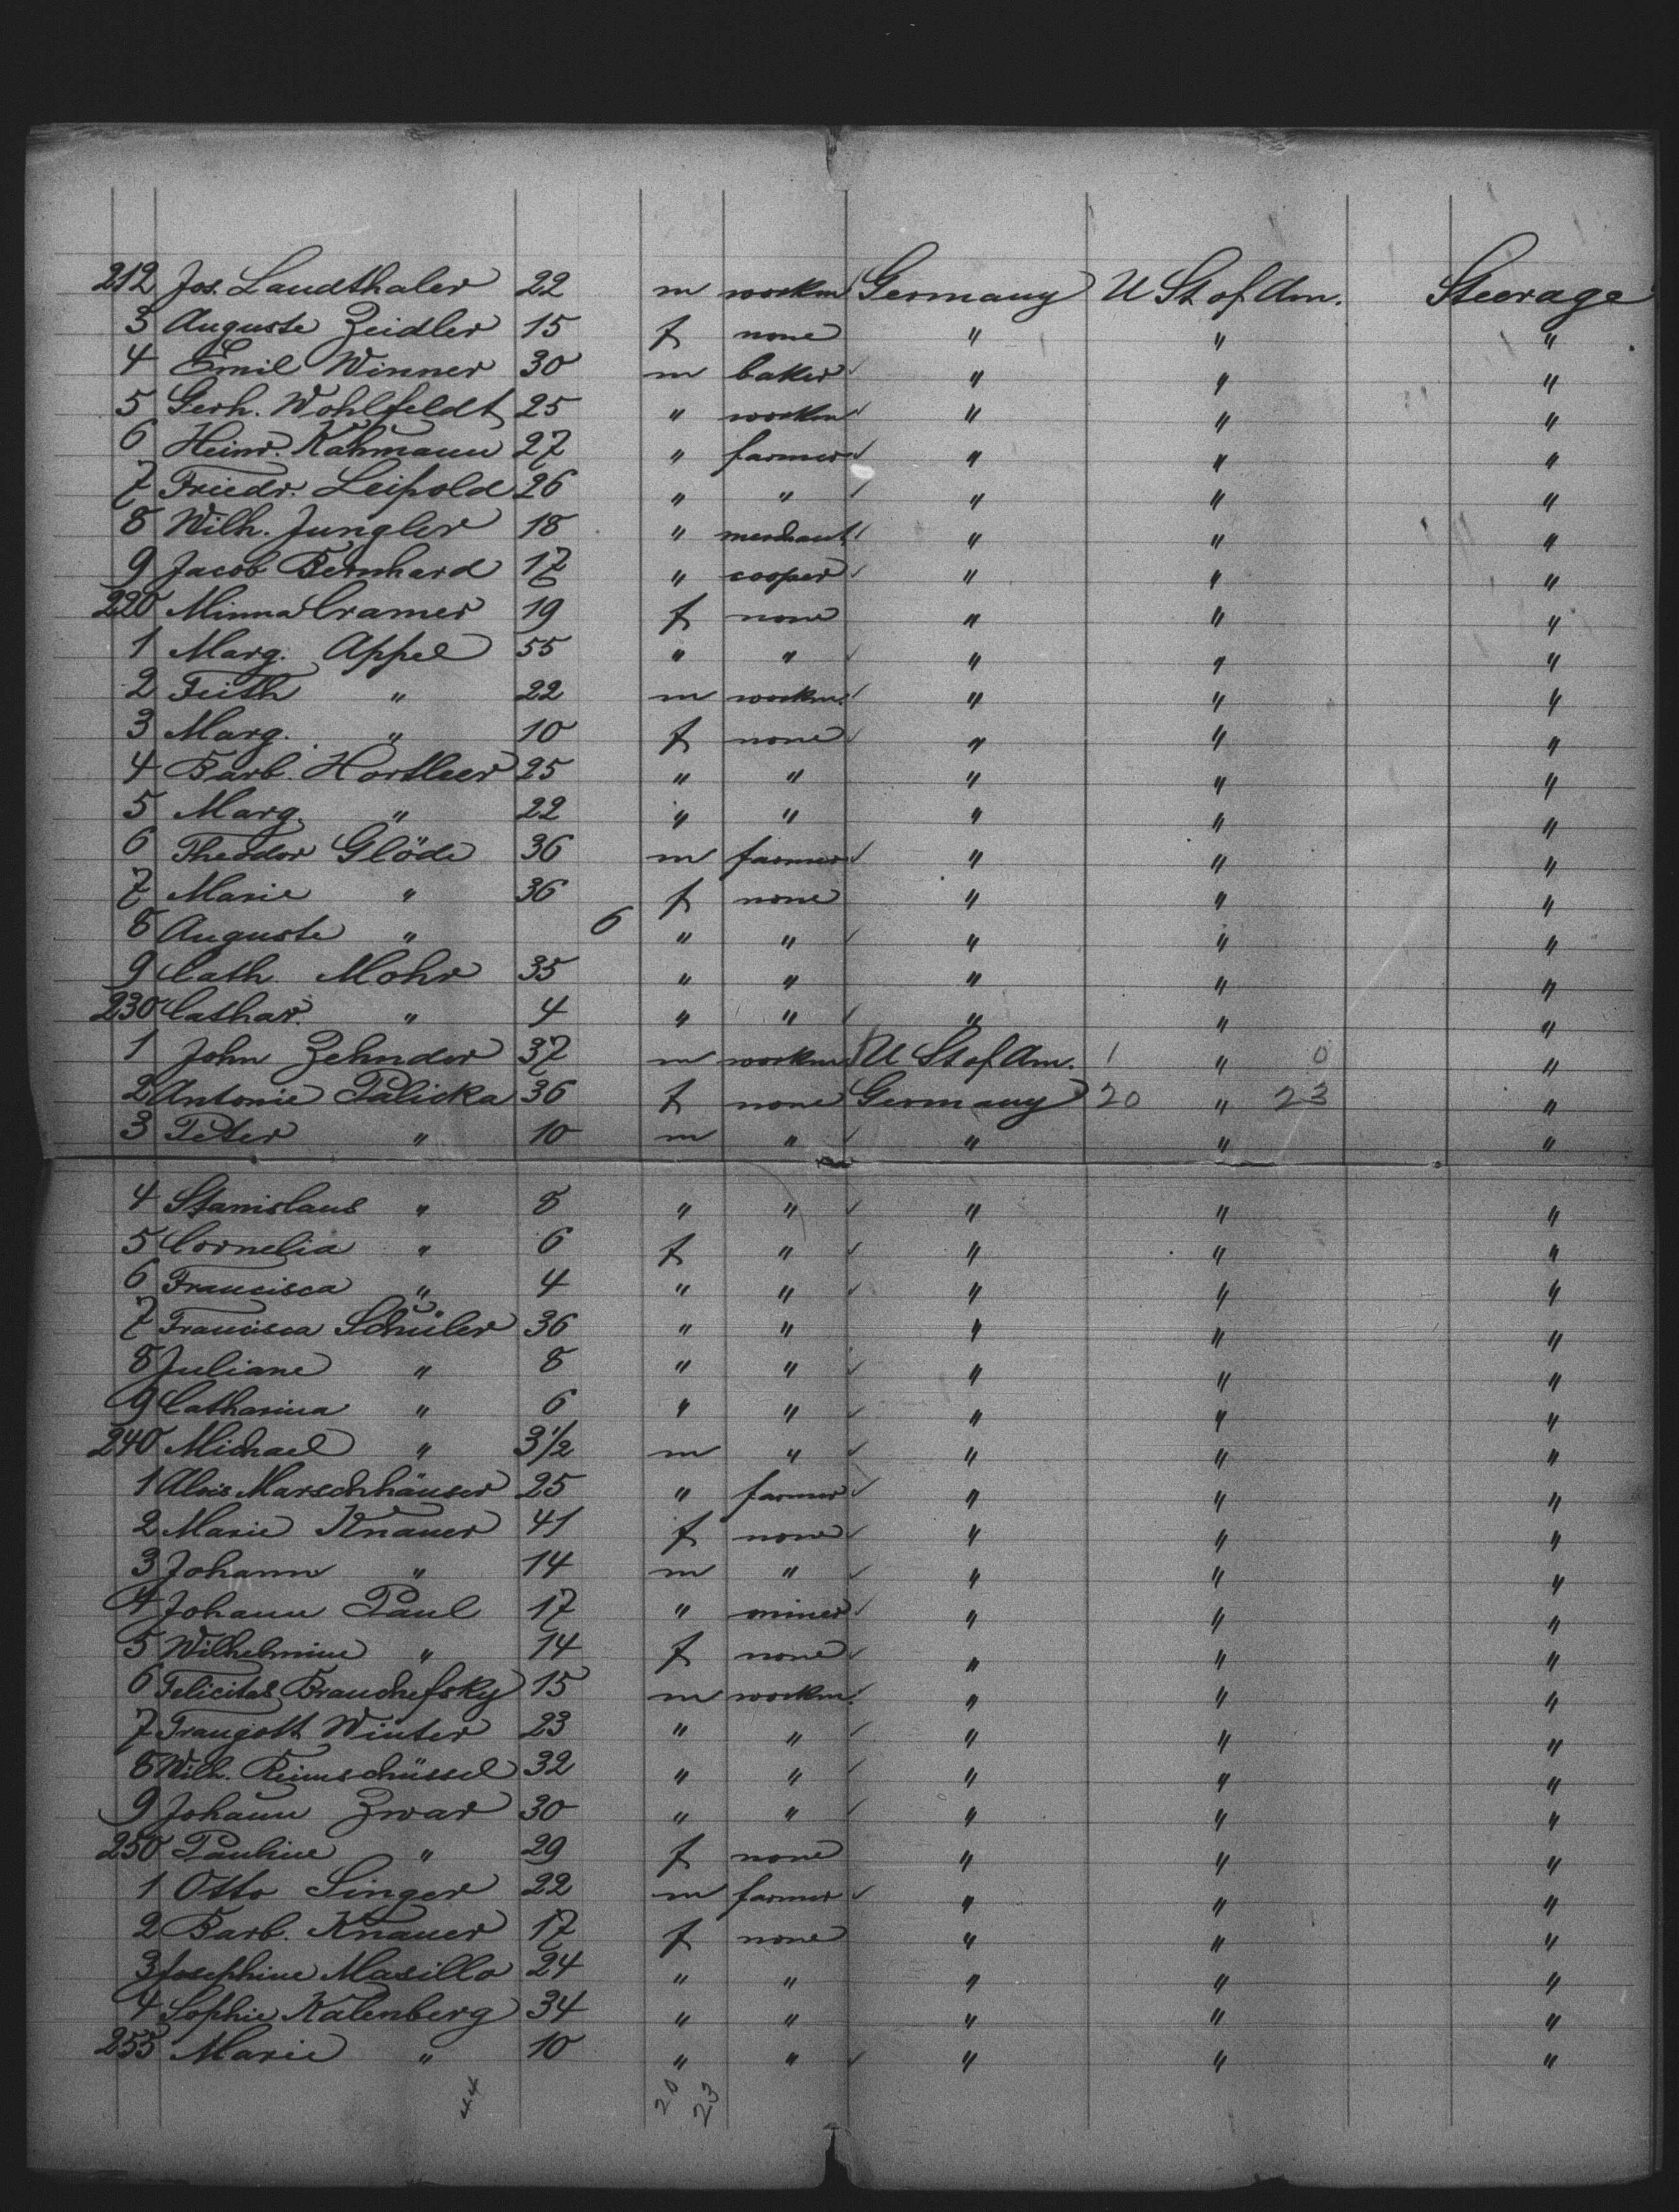 212 Jos. Landthaler 22 m workm Germany U St of Am. Steerage
3 Auguste Zeidler 15 f none " " "
4 Emil Winner 30 m baker " " "
5 Gerh. Wohlfeldt 25 " workm " " "
6 Heinr. Kahmann 27 " farmer " " "
7 Friedr. Leipold 26 " " " " "
8 Wilh. Jungler 18 " merchant " " "
9 Jacob Bernhard 17 " cooper " " "
220 Minna Cramer 19 f none " " "
1 Marg. Appel 55 " " " " "
2 Feith " 22 m workm. " " "
3 Marg. " 10 f none " " "
4 Barb. Hortleer 25 " " " " "
5 Marg. " 22 " " " " "
6 Theodor Glöde 36 m farmer " " "
7 Marie " 36 f none " " "
8 Auguste " 6 " " " " "
9 Cath. Mohr 35 " " " " "
230 Cathar. " 4 " " " " "
1 John Zehnder 37 m workm U St of Am. 1 " 0 "
2 Antonie Palicka 36 f none Germany 20 " 23 "
3 Peter " 10 m " " " "
4 Stanislaus " 8 " " " " "
5 Cornelia " 6 f " " " "
6 Francisca " 4 " " " " "
7 Francisca Schüler 36 " " " " "
8 Juliane " 8 " " " " "
9 Catharina " 6 " " " " "
240 Michael " 3½ m " " " "
1 Alois Marschhäuser 25 " farmer " " "
2 Marie Knauer 41 f none " " "
3 Johann " 14 m " " " "
4 Johann Paul 17 " miner " " "
5 Wilhelmine " 14 f none " " "
6 Felicitas Brauchefsky 15 m workm. " " "
7 Traugott Winter 23 " " " " "
8 Wilh. Reimschüssel 32 " " " " "
9 Johann Zwar 30 " " " " "
250 Pauline " 29 f none " " "
1 Otto Singer 22 m farmer " " "
2 Barb. Knauer 17 f none " " "
3 Josephine Masillo 24 " " " " "
4 Sophie Kalenberg 34 " " " " "
255 Marie " 10 " " " " "
44 20 23